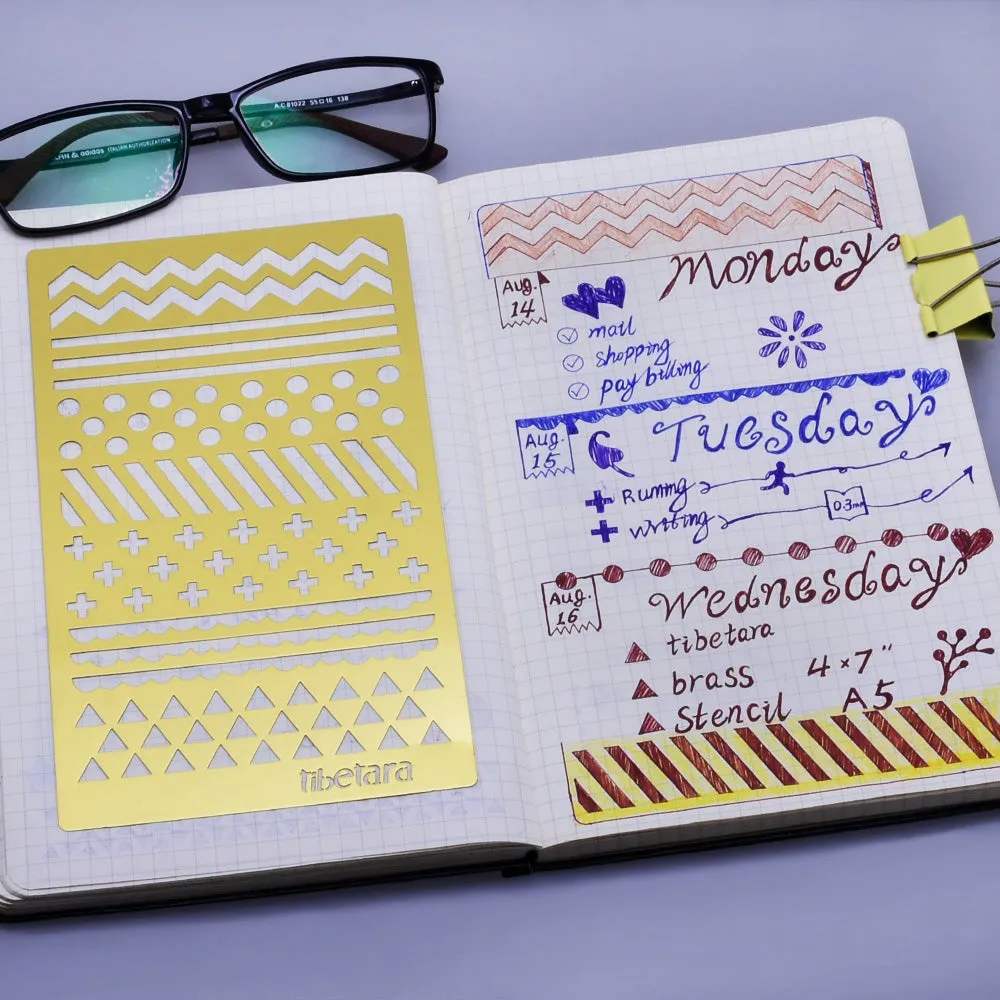 A.C 81022 55□16 138
& adidas ITALIAN AUTHORIZATION
tibetara
Monday
Aug.
14
mail
shopping
pay billing
Tuesday
Aug.
15
Running
Writing
0.3mm
Wednesday
Aug.
16
tibetara
brass 4×7"
Stencil A5